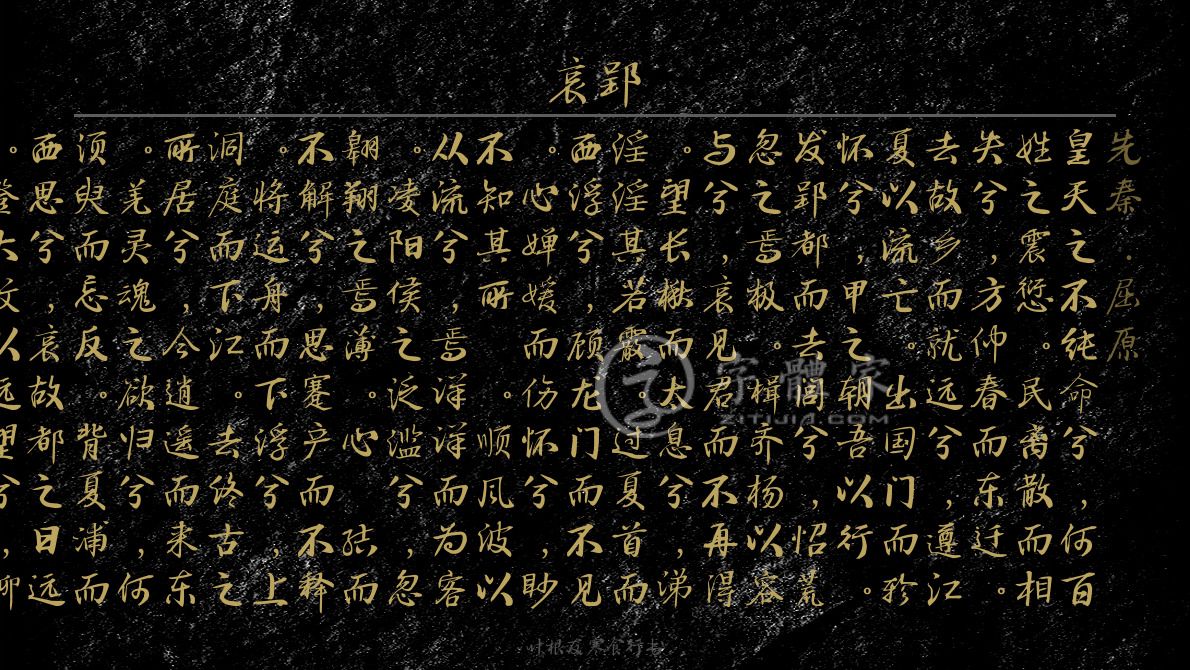 哀郢
先秦·屈原
皇天之不纯命兮，何百
姓之震愆。民离散而相
失兮，方仲春而东迁。
去故乡而就远兮，遵江
夏以流亡。出国门而轸
怀兮，甲之朝吾以行。
发郢都而去闾兮，怊荒
忽之焉极。楫齐杨以容
与兮，哀见君而不再得
。望长楸而太息兮，涕
淫淫其若霰。过夏首而
西浮兮，顾龙门而不见
。心婵媛而伤怀兮，眇
不知其所 。顺风波以
从流兮，焉洋洋而为客
。凌阳侯之泛滥兮，忽
翱翔之焉薄。心 结而
不解兮，思蹇产而不释
。将运舟而下浮兮，上
洞庭而下江。去终古之
所居兮，今逍遥而来东
。羌灵魂之欲归兮，何
须臾而忘反。背夏浦而
西思兮，哀故都之日远
。登大坟以远望兮，聊
字體家
ZITIJIA.COM
叶根友寒食行书